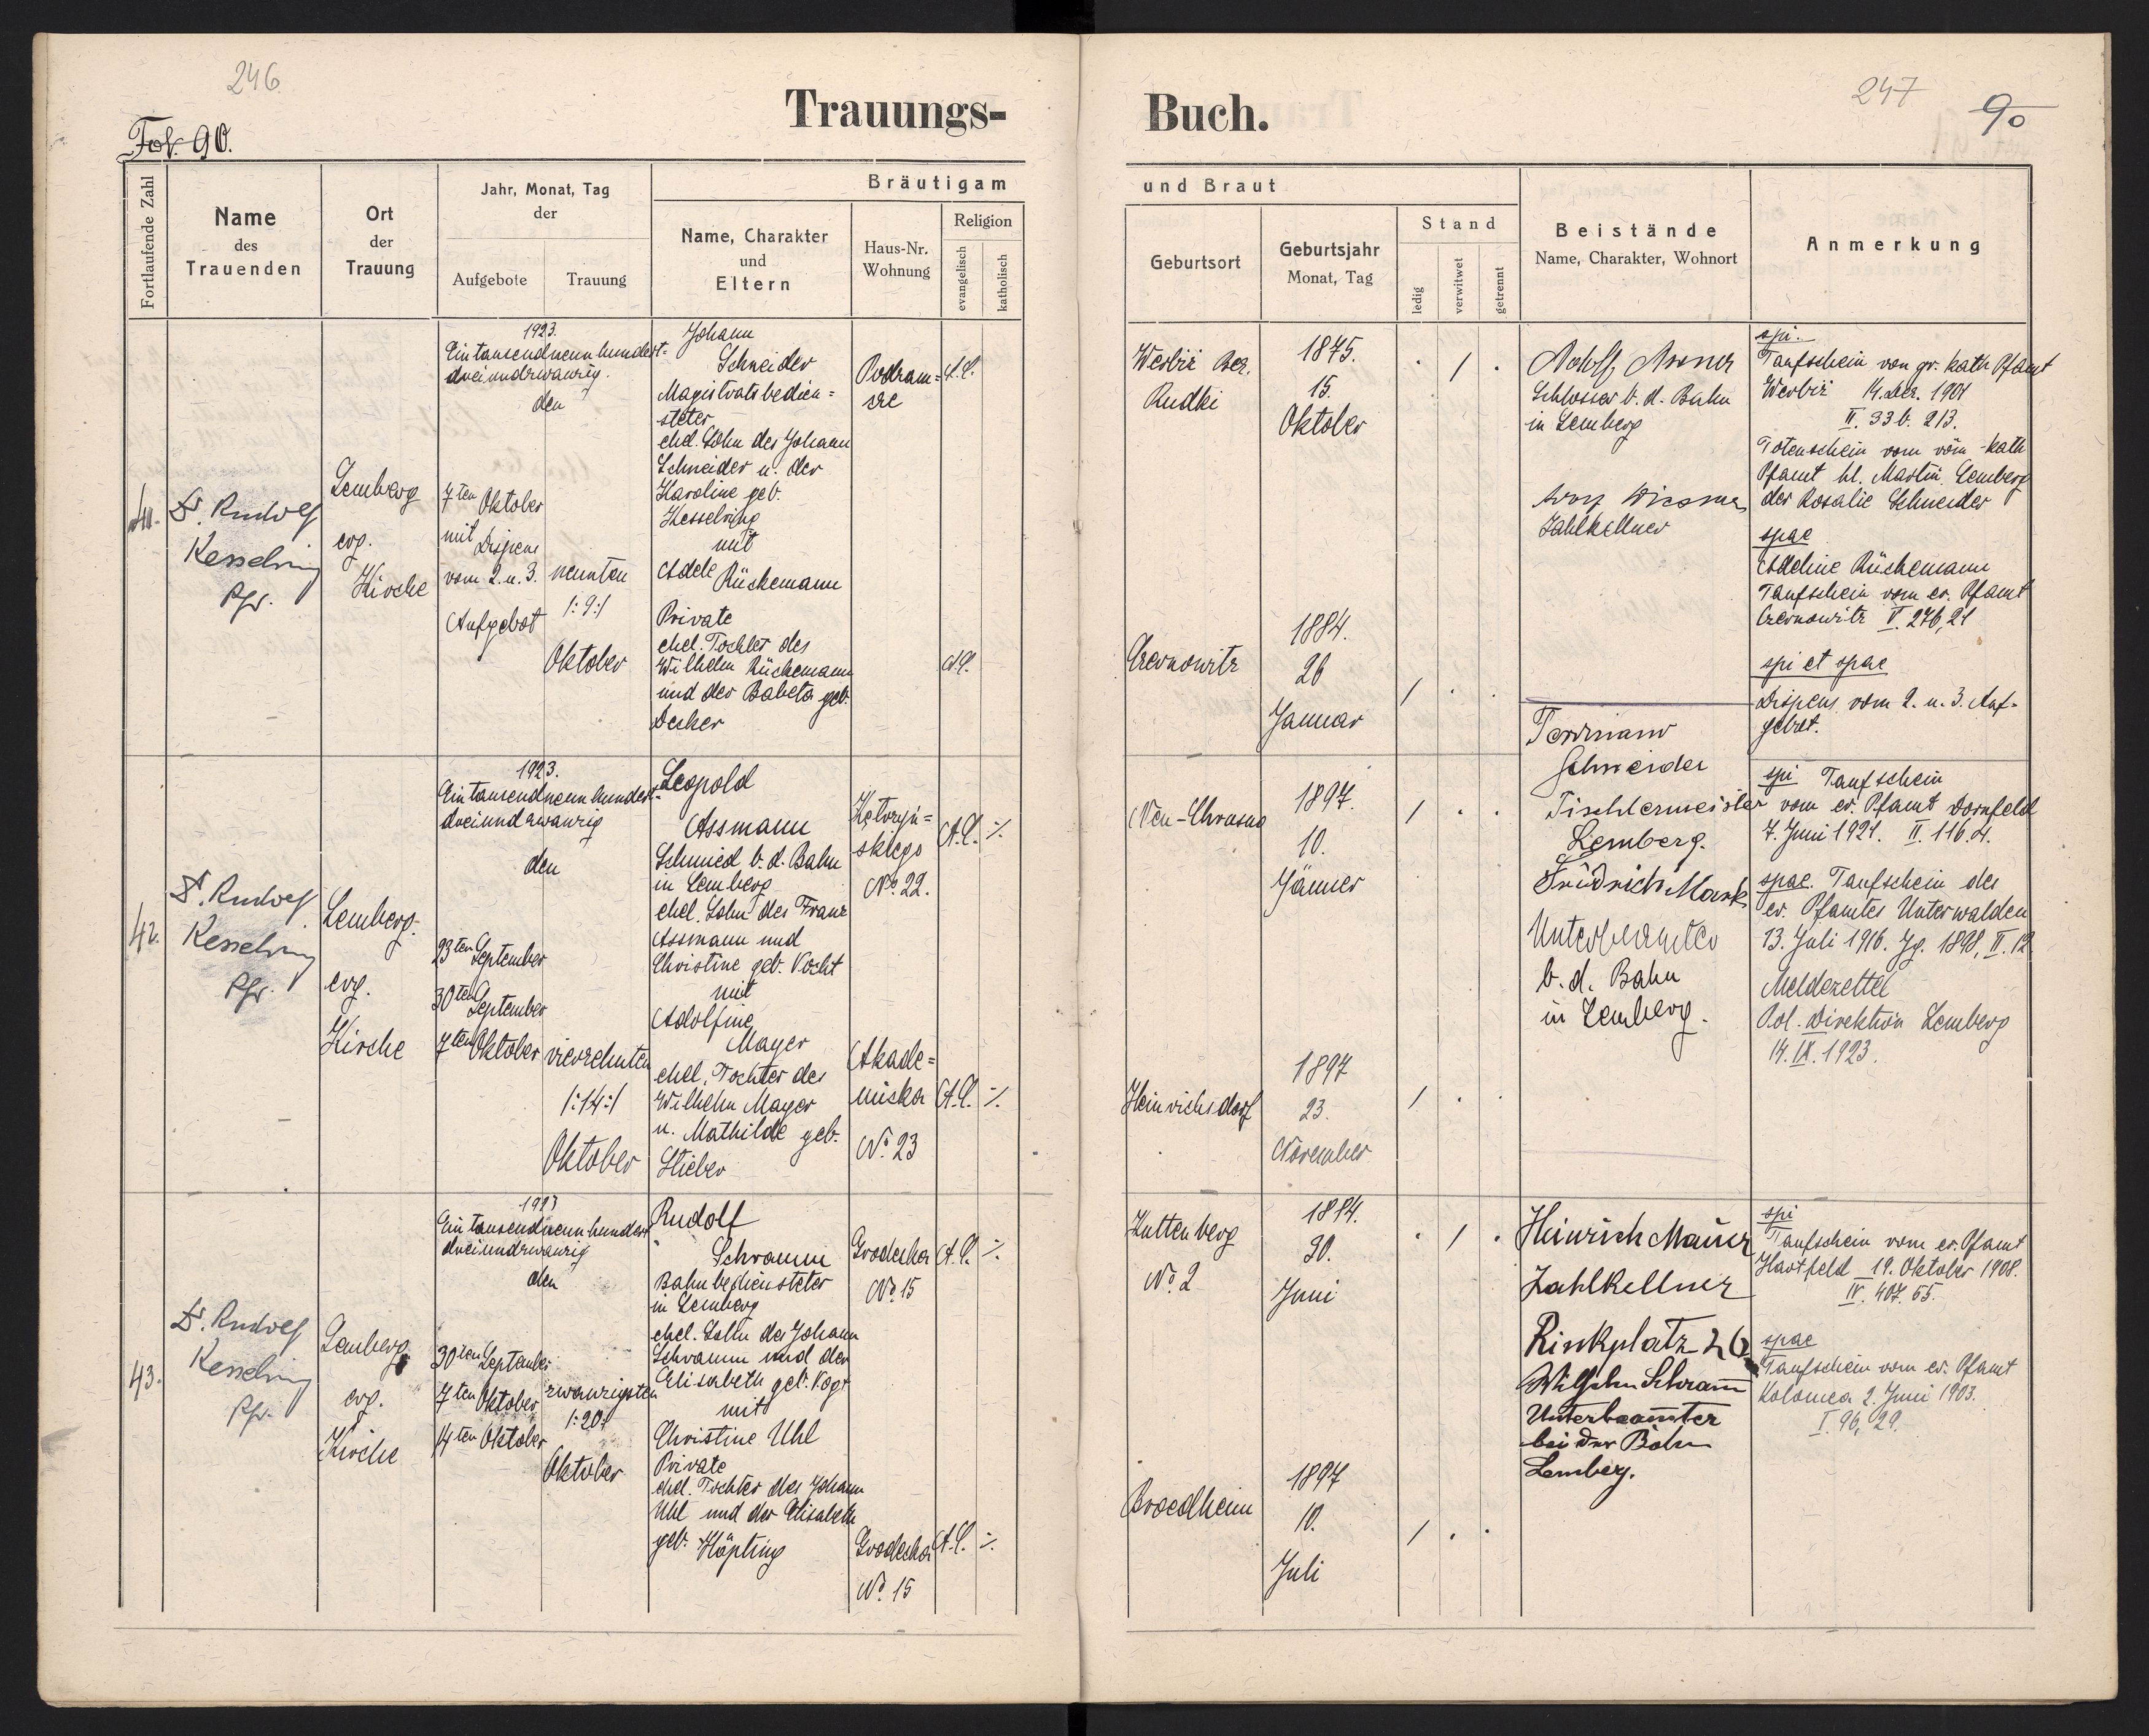 246
Trauungs-
Fol. 90.
Fortlaufende Zahl
Name
des
Trauenden
Ort
der
Trauung
Jahr, Monat, Tag
der
Aufgebote
Trauung
Bräutigam
Name, Charakter
und
Eltern
Haus-Nr.
Wohnung
Religion
evangelisch
katholisch
41.
Dr. Rudolf
Kesselring
Pfr.
Lemberg
evg.
Kirche
1923.
Eintausendneunhundert-
dreiundzwanzig.
den
7ten Oktober
mit Dispens
vom 2. u. 3.
Aufgebot
neunten
/:9:/
Oktober
Johann
Schneider
Magistratsbedien-
steter
ehel. Sohn des Johann
Schneider u. der
Karoline geb.
Kesselring
mit
Adele Rückemann
Private
ehel. Tochter des
Wilhelm Rückemann
und der Babeta geb.
Decker
Podzam-
cze
A.C.
A.C.
42.
Dr. Rudolf
Kesselring
Pfr.
Lemberg.
evg.
Kirche
1923.
Eintausendneunhundert-
dreiundzwanzig
den
23ten September
30ten September
7ten Oktober
vierzehnten
/:14:/
Oktober
Leopold
Assmann
Schmied b. d. Bahn
in Lemberg
ehel. Sohn des Franz
Assmann und
Christine geb. Vocht
mit
Adolfine
Mayer
ehel. Tochter des
Wilhelm Mayer
u. Mathilde geb.
Stieber
Kętrzyń-
skiego
No. 22.
A.C. ./.
Akade-
micka
No. 23
A.C. ./.
43.
Dr. Rudolf
Kesselring
Pfr.
Lemberg
evg.
Kirche
1923
Eintausendneunhundert
dreiundzwanzig
den
30ten September
7ten Oktober
14ten Oktober
zwanzigsten
/:20:/
Oktober
Rudolf
Schramm
Bahnbediensteter
in Lemberg
ehel. Sohn des Johann
Schramm und der
Elisabeth geb. Vogt
mit
Christine Uhl
Private
ehel. Tochter des Johann
Uhl und der Elisabeth
geb. Höpting
Grodecka
No. 15
A.C. ./.
Grodecka
No. 15
A.C. ./.
247
90
Buch.
und Braut
Geburtsort
Geburtsjahr
Monat, Tag
Stand
ledig
verwitwet
getrennt
Beistände
Name, Charakter, Wohnort
Anmerkung
Werbiż Bez.
Rudki
1875.
15.
Oktober
. / .
Czernowitz
1884.
26
Januar
/ . .
Adolf
Schlosser b. d. Bahn
in Lemberg
Zahlkellner
spi.
Taufschein von gr. kath Pfamt
Werbiż 14. Dez. 1901
II. 33 b. 213.
Totenschein vom röm-kath
Pfamt hl. Martin Lemberg
der Rosalie Schneider
spae
Adeline Rückemann
Taufschein vom ev. Pfamt
Czernowitz V. 276, 21
spi et spae
Dispens vom 2. u. 3. Auf-
gebot.
Neu-Chrusno
1897.
10.
Jänner
/ . .
Heinrichsdorf
1897
23.
November
/ . .
Ferdinand
Schneider
Tischlermeister
Lemberg.
Fridrich Mark
Unterbeamter
b. d. Bahn
in Lemberg.
spi Taufschein
vom ev. Pfamt Dornfeld
7. Juni 1921. II. 116. 4.
spae. Taufschein des
ev. Pfamtes Unterwalden
13. Juli 1916. Jg. 1898, II. 12
Meldezettel
Pol. Direktion Lemberg
14. IX. 1923.
Kuttenberg
No. 2
1884.
30.
Juni
. / .
Broedheim
1897
10.
Juli
/ . .
Heinrich Mauer
Zahlkellner
Rinkplatz 26
Wilhelm Schramm
Unterbeamter
bei der Bahn
Lemberg.
spi
Taufschein vom ev. Pfamt
Hartfeld 19. Oktober 1908.
IV. 407. 65.
spae
Taufschein vom ev. Pfamt
Kolomea 2. Juni 1903.
I. 96, 29.